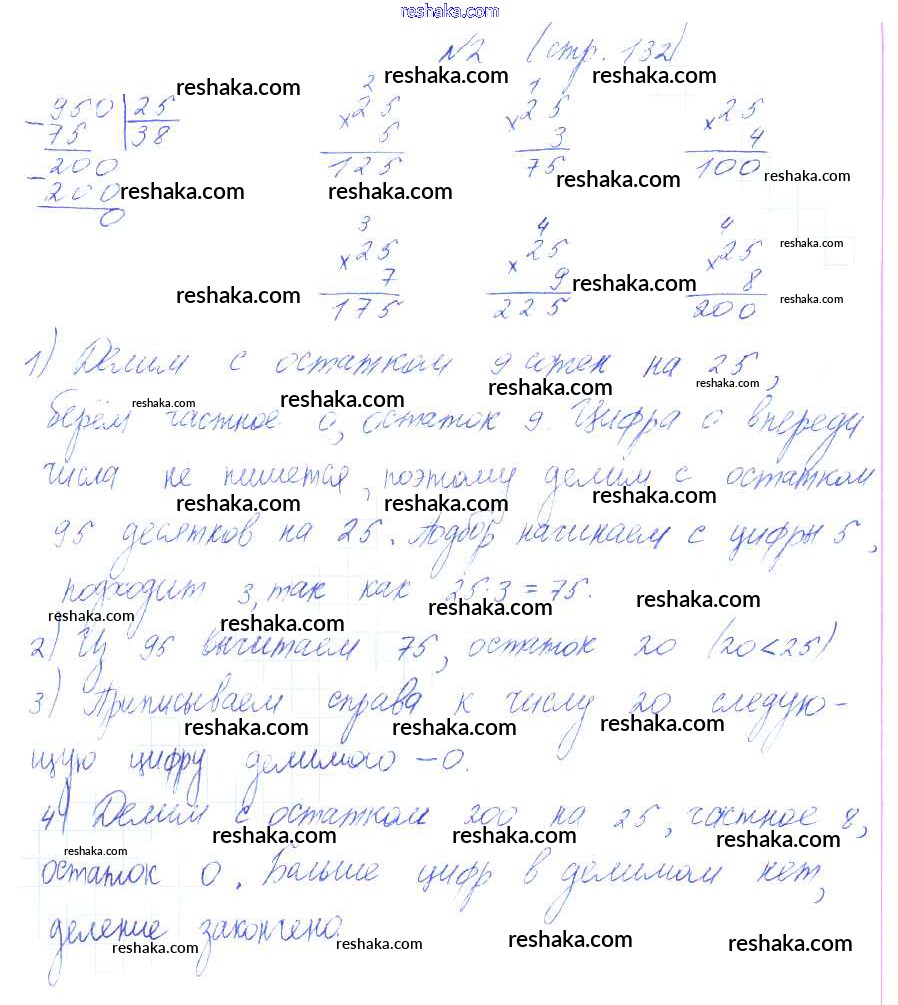 reshaka.com
№2 (стр. 132)
reshaka.com reshaka.com reshaka.com
2 1
- 950 | 25 × 25 × 25 × 25
75 | 38 5 3 4
- 200 125 75 100
200
0
reshaka.com reshaka.com reshaka.com reshaka.com
3 4 4
× 25 × 25 × 25
7 9 8
175 225 200
reshaka.com reshaka.com reshaka.com reshaka.com
1) Делим с остатком 9 сотен на 25,
reshaka.com reshaka.com reshaka.com reshaka.com
берём частное 0, остаток 9. Цифра 0 впереди
числа не пишется, поэтому делим с остатком
reshaka.com reshaka.com reshaka.com
95 десятков на 25. Подбор начинаем с цифры 5,
подходит 3, так как 25·3=75.
reshaka.com reshaka.com reshaka.com reshaka.com
2) Из 95 вычитаем 75, остаток 20 (20<25)
3) Приписываем справа к числу 20 следую-
reshaka.com reshaka.com reshaka.com
щую цифру делимого – 0.
4) Делим с остатком 200 на 25, частное 8,
reshaka.com reshaka.com reshaka.com
reshaka.com
остаток 0. Больше цифр в делимом нет,
деление закончено.
reshaka.com reshaka.com reshaka.com reshaka.com